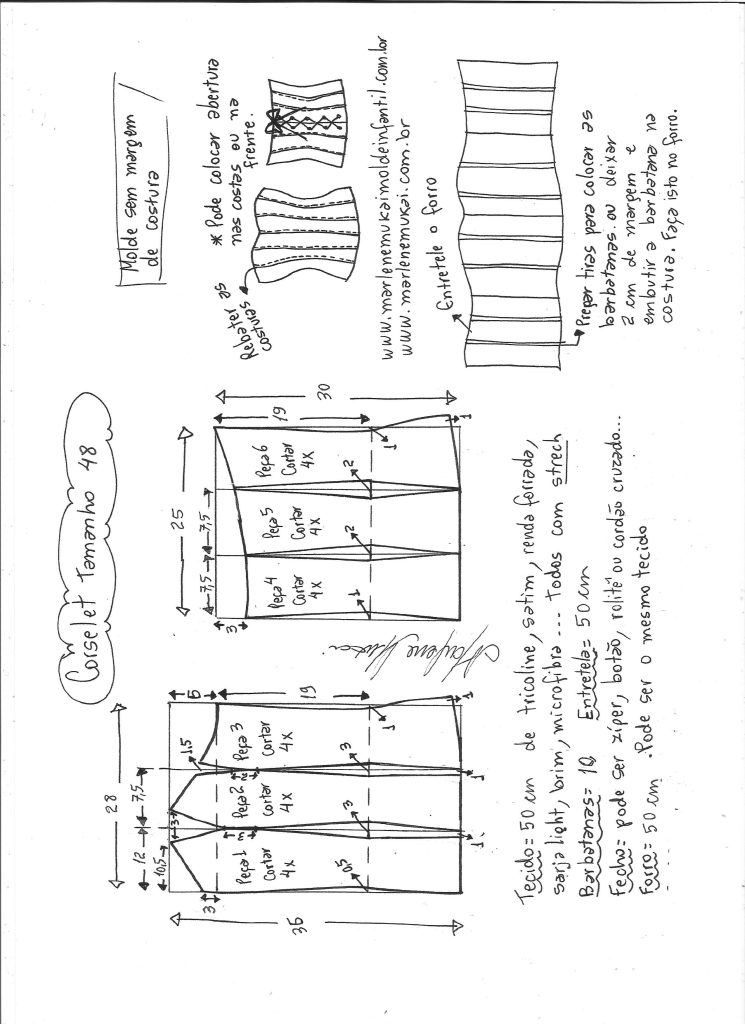 Corselet Tamanho 48
Molde sem margem
de costura
* Pode colocar abertura
nas costas ou na
frente.
Rebater as
costuras
www.marlenemukaimoldeinfantil.com.br
www.marlenemukai.com.br
Entretele o forro
Prepar tiras para colocar as
barbatanas ou deixar
2 cm de margem e
embutir a barbatana na
costura. Faça isto no forro.
28
12
7,5
10,5
3
1,5
5
3
35
19
Peça 1
Cortar
4X
Peça 2
Cortar
4X
Peça 3
Cortar
4X
3
2
0,5
3
3
1
1
1
1
25
7,5
7,5
3
30
19
Peça 4
Cortar
4X
Peça 5
Cortar
4X
Peça 6
Cortar
4X
1
2
2
1
1
Tecido = 50 cm de tricoline, satim, renda forrada,
sarja light, brim, microfibra... todos com strech
Barbatanas = 10 Entretela = 50 cm
Fecho = pode ser zíper, botão, rolitê ou cordão cruzado...
Forro = 50 cm . Pode ser o mesmo tecido